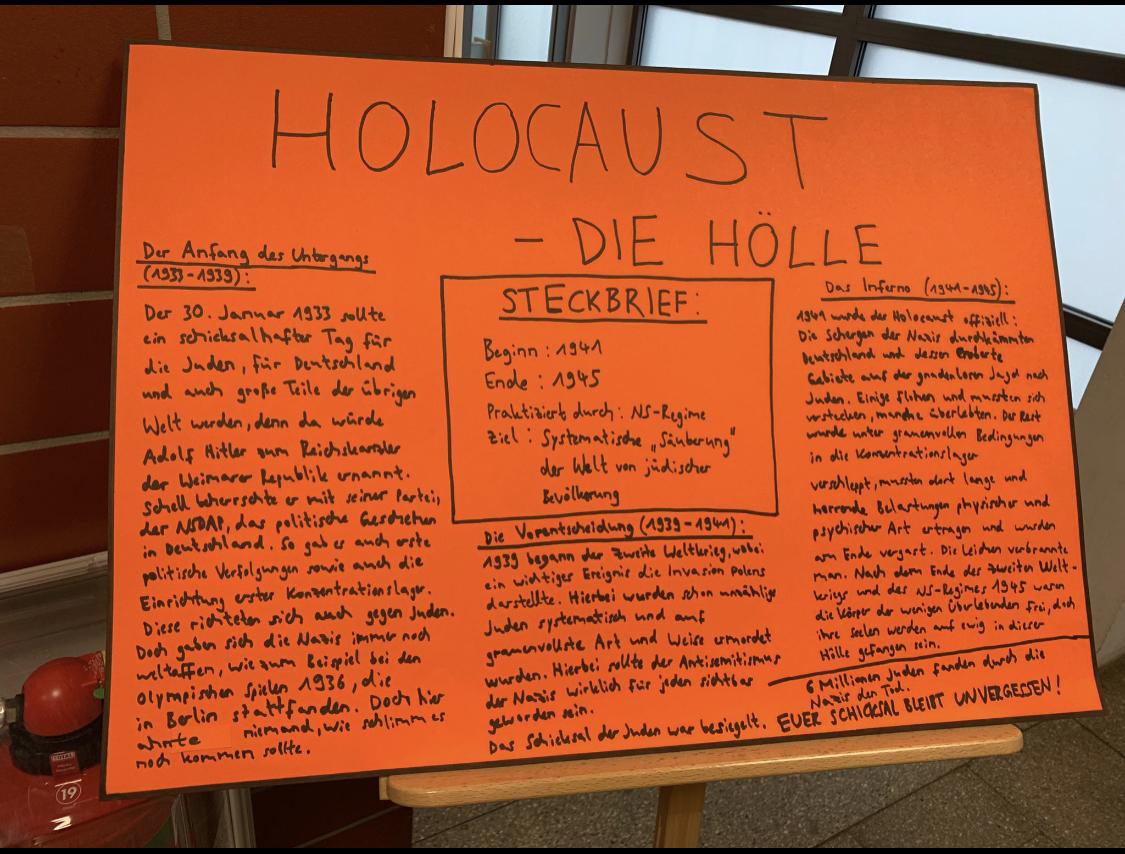 HOLOCAUST
- DIE HÖLLE
Der Anfang des Untergangs
(1933-1939):
Der 30. Januar 1933 sollte
ein schicksalhafter Tag für
die Juden, für Deutschland
und auch große Teile der übrigen
Welt werden, denn da würde
Adolf Hitler zum Reichskanzler
der Weimarer Republik ernannt.
Schell beherrschte er mit seiner Partei,
der NSDAP, das politische Geschehen
in Deutschland. So gab es auch erste
politische Verfolgungen sowie auch die
Einrichtung erster Konzentrationslager.
Diese richteten sich auch gegen Juden.
Doch gaben sich die Nazis immer noch
weltoffen, wie zum Beispiel bei den
Olympischen Spielen 1936, die
in Berlin stattfanden. Doch hier
ahnte niemand, wie schlimm es
noch kommen sollte.
STECKBRIEF:
Beginn: 1941
Ende: 1945
Praktiziert durch: NS-Regime
Ziel: Systematische „Säuberung"
der Welt von jüdischer
Bevölkerung
Die Vorentscheidung (1939-1941):
1939 begann der zweite Weltkrieg, wobei
ein wichtiger Ereignis die Invasion Polens
darstellte. Hierbei wurden schon unzählige
Juden systematisch und auf
grauenvollste Art und Weise ermordet
wurden. Hierbei sollte der Antisemitismus
der Nazis wirklich für jeden sichtbar
geworden sein.
Das Schicksal der Juden war besiegelt.
Das Inferno (1941-1945):
1941 wurde der Holocaust offiziell:
Die Schergen der Nazis durchkämmten
Deutschland und dessen eroberte
Gebiete auf der gnadenlosen Jagd nach
Juden. Einige flohen und mussten sich
verstecken, manche überlebten. Der Rest
wurde unter grauenvollen Bedingungen
in die Konzentrationslager
verschleppt, mussten dort lange und
horrende Belastungen physischer und
psychischer Art ertragen und wurden
am Ende vergast. Die Leichen verbrannte
man. Nach dem Ende des zweiten Welt-
kriegs und des NS-Regimes 1945 waren
die Körper der wenigen Überlebenden frei, doch
ihre Seelen werden auf ewig in dieser
Hölle gefangen sein.
6 Millionen Juden fanden durch die
Nazis den Tod.
EUER SCHICKSAL BLEIBT UNVERGESSEN!
TOTAL
19